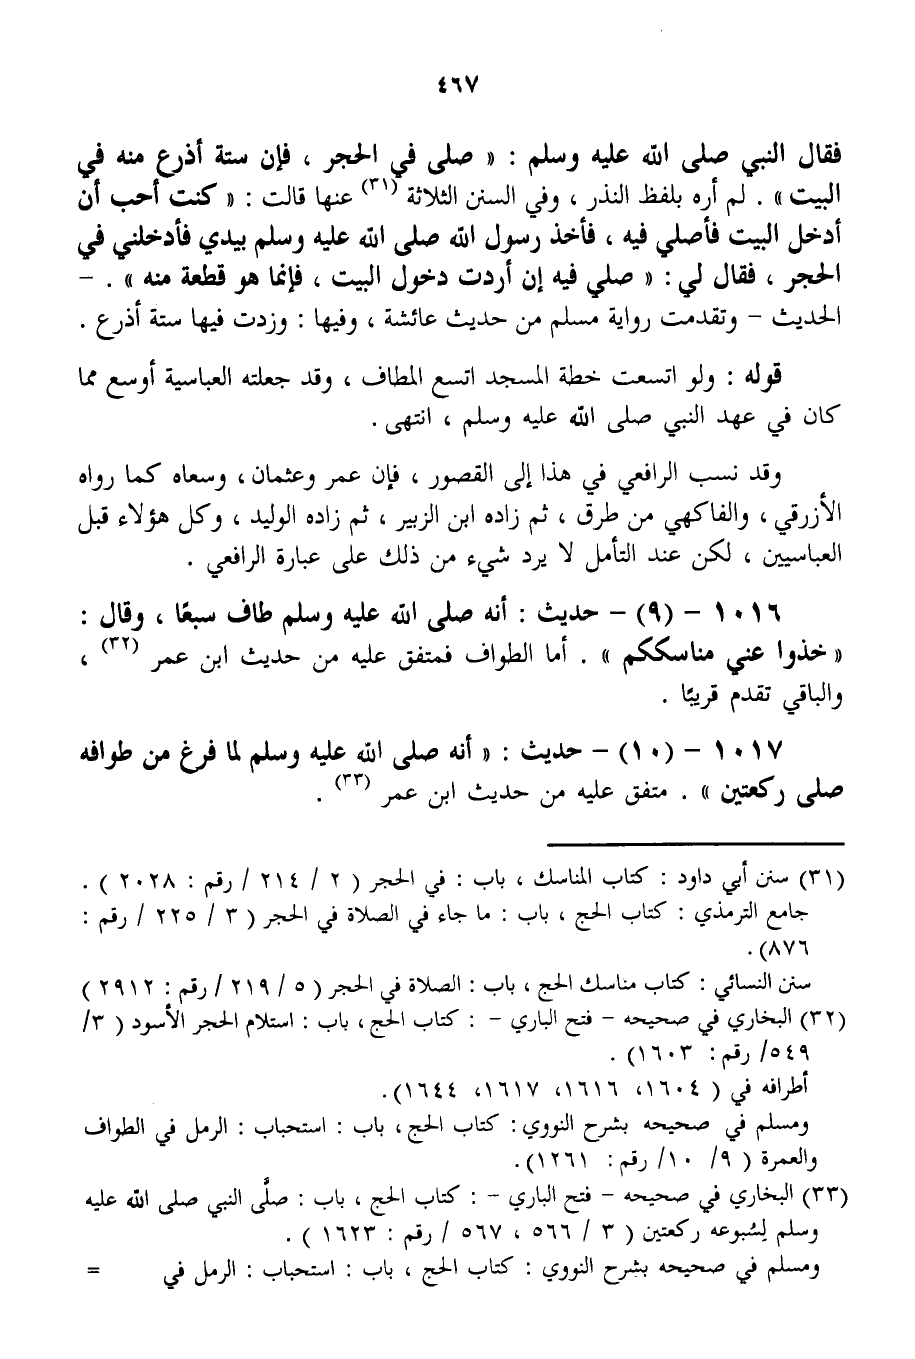 ٤٦٧
فقال النبي صلى الله عليه وسلم : « صلى في الحجر ، فإن ستة أذرع منه في
البيت » . لم أره بلفظ النذر ، وفي السنن الثلاثة (٣١) عنها قالت : « كنت أحب أن
أدخل البيت فأصلي فيه ، فأخذ رسول الله صلى الله عليه وسلم بيدي فأدخلني في
الحجر ، فقال لي : « صلي فيه إن أردت دخول البيت ، فإنما هو قطعة منه » . –
الحديث – وتقدمت رواية مسلم من حديث عائشة ، وفيها : وزدت فيها ستة أذرع .
قوله : ولو اتسعت خطة المسجد اتسع المطاف ، وقد جعلته العباسية أوسع مما
كان في عهد النبي صلى الله عليه وسلم ، انتهى .
وقد نسب الرافعي في هذا إلى القصور ، فإن عمر وعثمان ، وسعاه كما رواه
الأزرقي ، والفاكهي من طرق ، ثم زاده ابن الزبير ، ثم زاده الوليد ، وكل هؤلاء قبل
العباسيين ، لكن عند التأمل لا يرد شيء من ذلك على عبارة الرافعي .
١٠١٦ – (٩) – حديث : أنه صلى الله عليه وسلم طاف سبعًا ، وقال :
« خذوا عني مناسككم » . أما الطواف فمتفق عليه من حديث ابن عمر (٣٢) ،
والباقي تقدم قريبًا .
١٠١٧ – (١٠) – حديث : « أنه صلى الله عليه وسلم لما فرغ من طوافه
صلى ركعتين » . متفق عليه من حديث ابن عمر (٣٣) .
(٣١) سنن أبي داود : كتاب المناسك ، باب : في الحجر ( ٢ / ٢١٤ / رقم : ٢٠٢٨ ) .
جامع الترمذي : كتاب الحج ، باب : ما جاء في الصلاة في الحجر ( ٣ / ٢٢٥ / رقم :
٨٧٦) .
سنن النسائي : كتاب مناسك الحج ، باب : الصلاة في الحجر ( ٥ / ٢١٩ / رقم : ٢٩١٢ )
(٣٢) البخاري في صحيحه – فتح الباري – : كتاب الحج ، باب : استلام الحجر الأسود ( ٣/
٥٤٩/ رقم : ١٦٠٣) .
أطرافه في ( ١٦٠٤، ١٦١٦، ١٦١٧، ١٦٤٤).
ومسلم في صحيحه بشرح النووي : كتاب الحج ، باب : استحباب : الرمل في الطواف
والعمرة ( ٩/ ١٠/ رقم : ١٢٦١).
(٣٣) البخاري في صحيحه – فتح الباري – : كتاب الحج ، باب : صلَّى النبي صلى الله عليه
وسلم لِسُبوعه ركعتين ( ٣ / ٥٦٦ ، ٥٦٧ / رقم : ١٦٢٣ ) .
ومسلم في صحيحه بشرح النووي : كتاب الحج ، باب : استحباب : الرمل في =